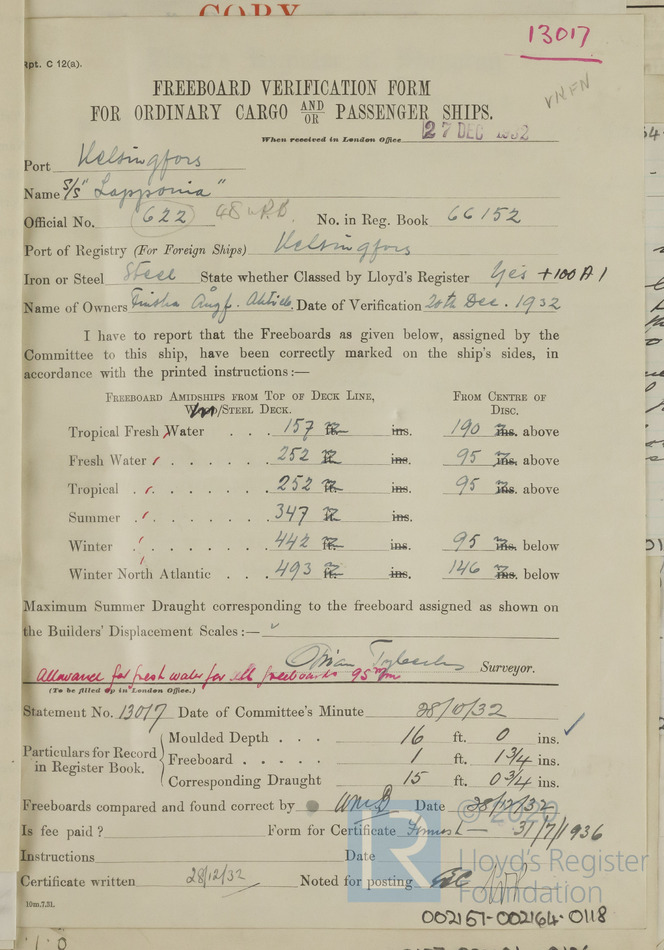 COPY
13017
Rpt. C 12(a).
VKFN
FREEBOARD VERIFICATION FORM
FOR ORDINARY CARGO AND/OR PASSENGER SHIPS.
When received in London Office 27 DEC 1932
Port Helsingfors
Name S/S "Lapponia"
Official No. 622 No. in Reg. Book 66152
Port of Registry (For Foreign Ships) Helsingfors
Iron or Steel Steel State whether Classed by Lloyd's Register Yes +100A1
Name of Owners Finska Ångf. Aktieb. Date of Verification 20th Dec. 1932
I have to report that the Freeboards as given below, assigned by the
Committee to this ship, have been correctly marked on the ship's sides, in
accordance with the printed instructions:—
FREEBOARD AMIDSHIPS FROM TOP OF DECK LINE, FROM CENTRE OF
/STEEL DECK. DISC.
Tropical Fresh Water . . . 157 ft. ins. 190 ins. above
Fresh Water . . . . . . 252 ft. ins. 95 ins. above
Tropical . . . . . . . 252 ft. ins. 95 ins. above
Summer . . . . . . . 347 ft. ins.
Winter . . . . . . . 442 ft. ins. 95 ins. below
Winter North Atlantic . . . 493 ft. ins. 146 ins. below
Maximum Summer Draught corresponding to the freeboard assigned as shown on
the Builders' Displacement Scales:—
Surveyor.
Allowance for fresh water for all freeboards 95 mm
(To be filled up in London Office.)
Statement No. 13017 Date of Committee's Minute 28/10/32
Particulars for Record in Register Book.
Moulded Depth . . . 16 ft. 0 ins.
Freeboard . . . . . 1 ft. 1 3/4 ins.
Corresponding Draught 15 ft. 0 3/4 ins.
Freeboards compared and found correct by Date 28/12/32
Is fee paid? Form for Certificate 31/7/1936
Instructions Date
Certificate written 28/12/32 Noted for posting
10m.7.31.
© 2020
Lloyd's Register
Foundation
002157-002164-0118